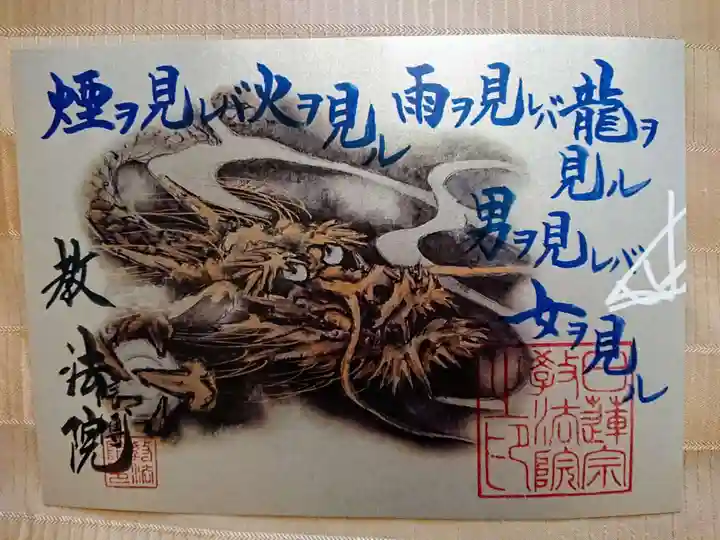 煙ヲ見レバ火ヲ見ル
雨ヲ見レバ龍ヲ見ル
男ヲ見レバ女ヲ見ル
教法院
日蓮宗
教法院
之印